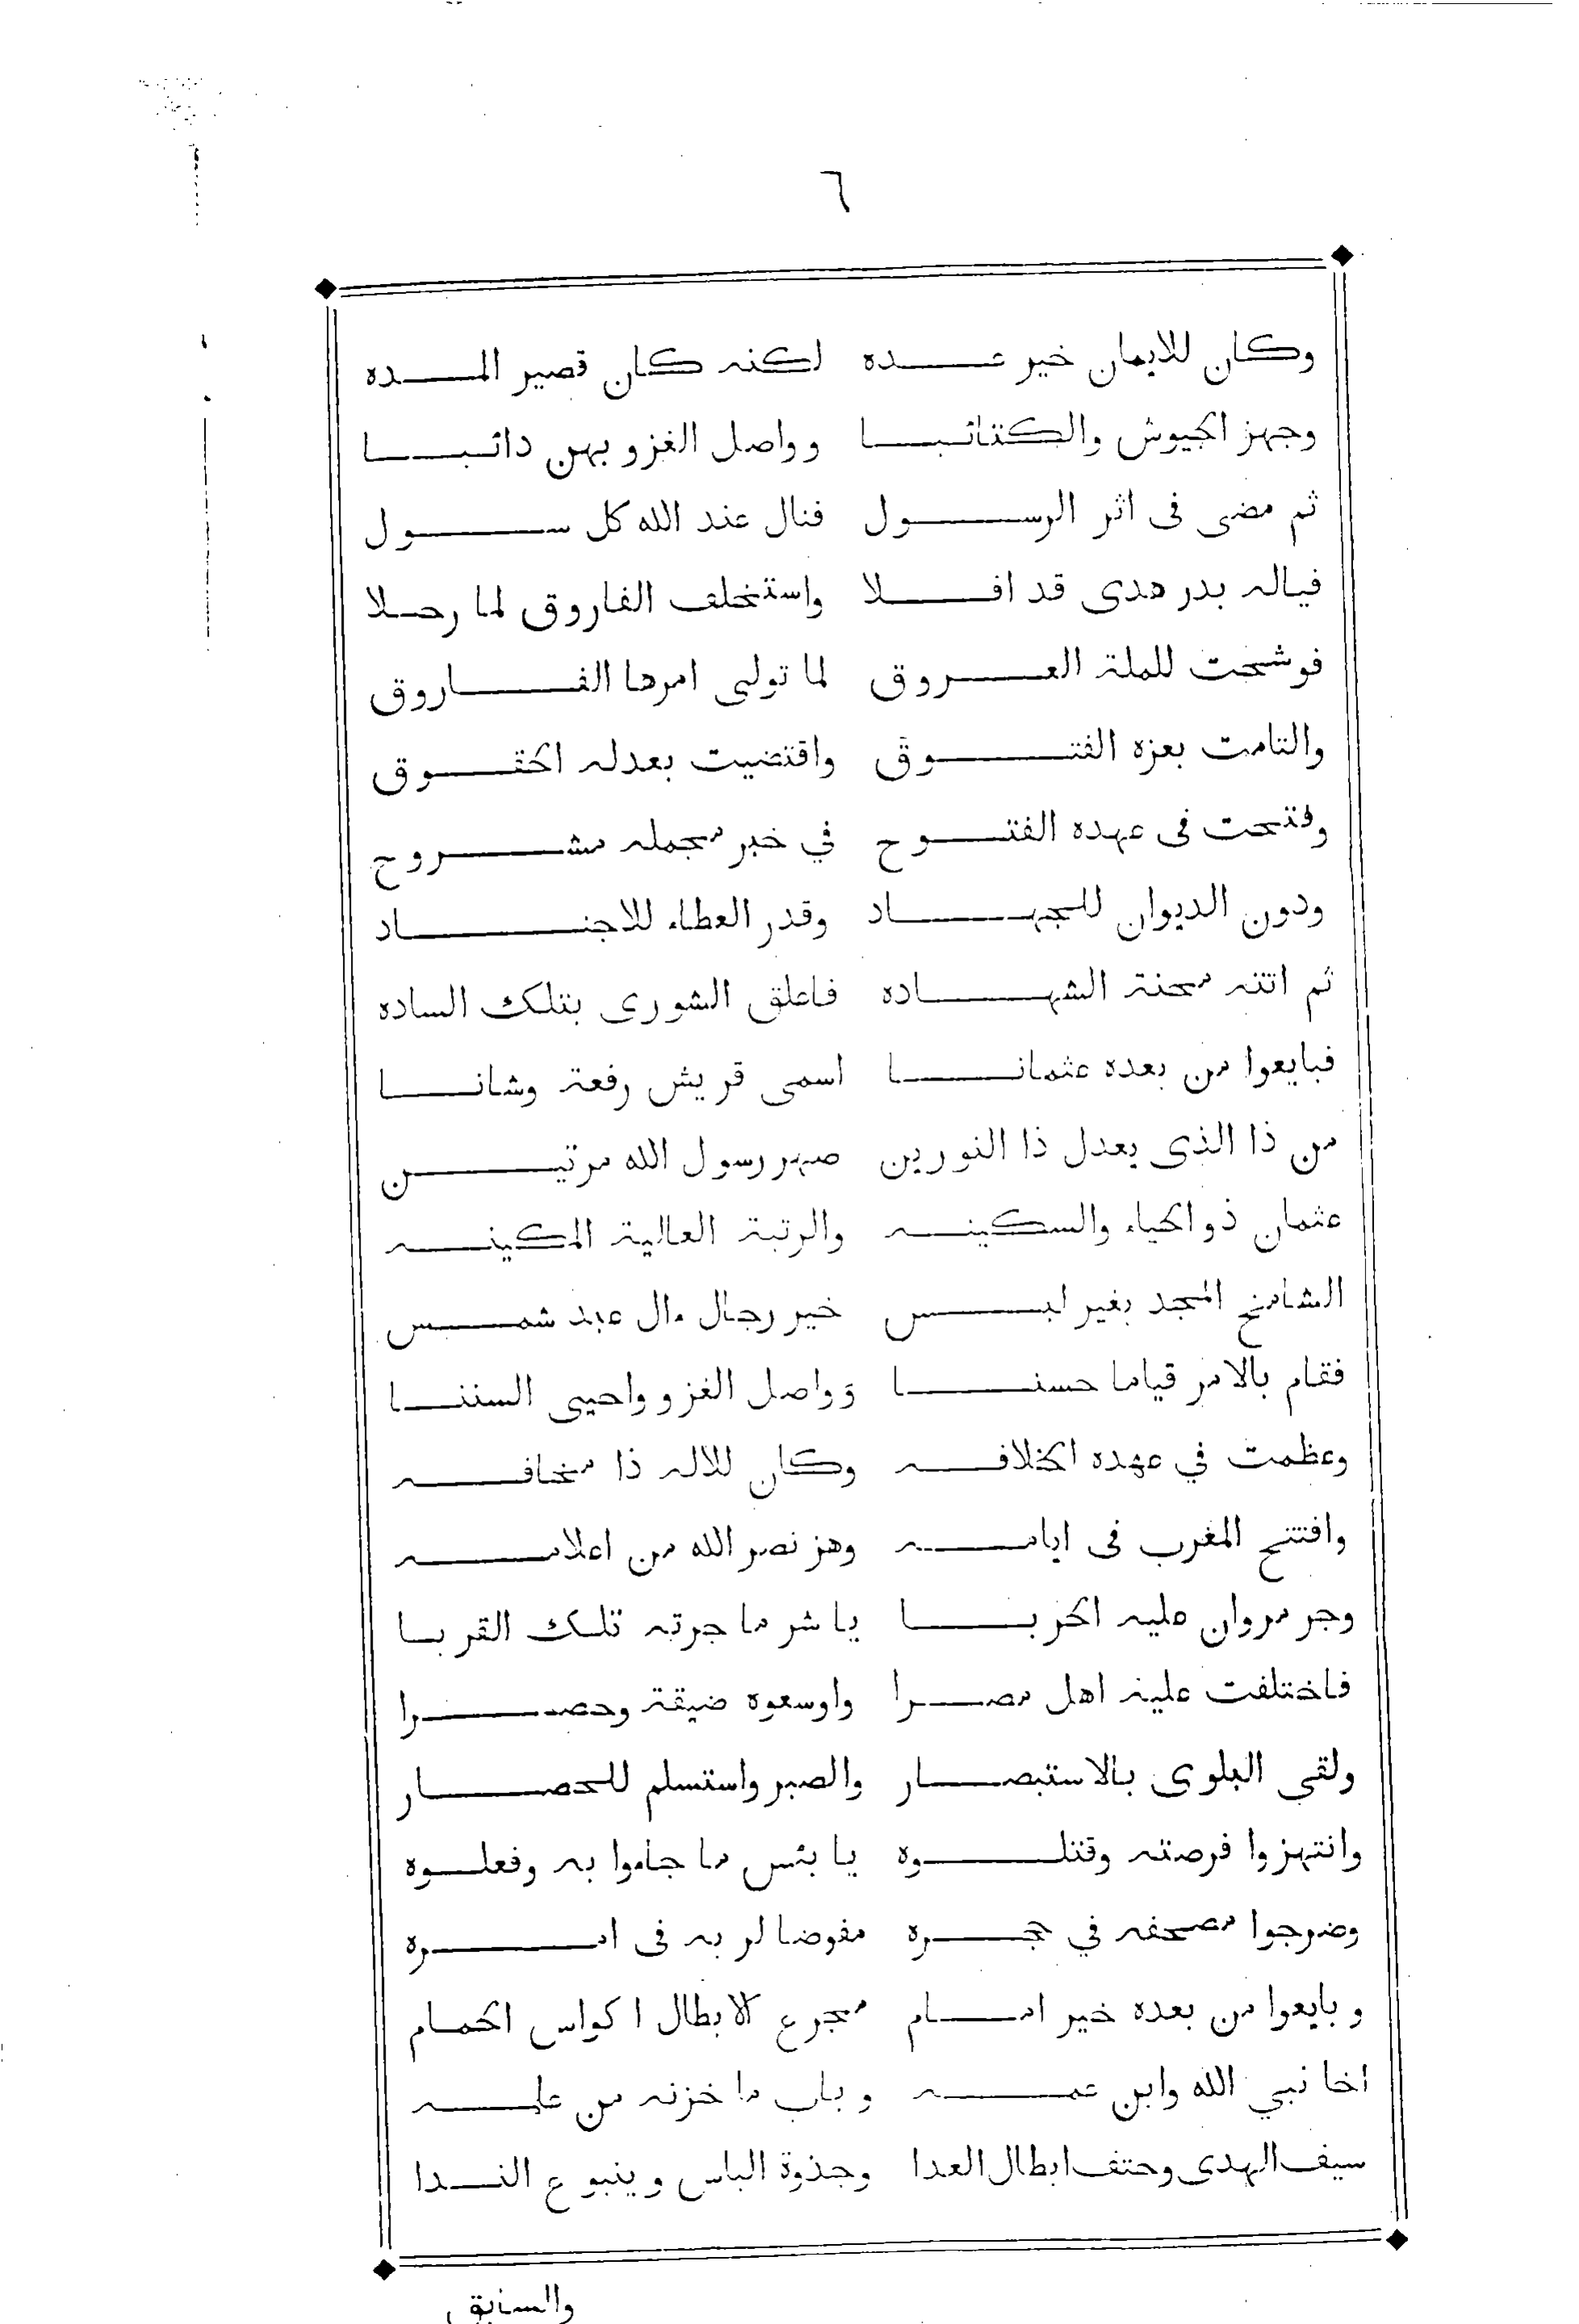 ٦
وكان للايمان خير عده لكنه كان قصير المده
وجهز الجيوش والكتائبا وواصل الغزو بهن دائبا
ثم مضى فى اثر الرسول فنال عند الله كل سول
فياله بدر هدى قد افلا واستخلف الفاروق لما رحلا
فوشحت للملة العروق لما تولى امرها الفاروق
والتامت بعزه الفتوق واقتضيت بعدله الحقوق
وفتحت فى عهده الفتوح في خبر مجمله مشروح
ودون الديوان للجهاد وقدر العطاء للاجناد
ثم اتته محنة الشهاده فاعلق الشورى بتلك الساده
فبايعوا من بعده عثمانا اسمى قريش رفعة وشانا
من ذا الذى يعدل ذا النورين صهر رسول الله مرتين
عثمان ذو الحياء والسكينه والرتبة العالية المكينه
الشامخ المجد بغير لبس خير رجال ءال عبد شمس
فقام بالامر قياما حسنا وواصل الغزو واحيى السننا
وعظمت في عهده الخلافه وكان للاله ذا مخافه
وافتتح المغرب فى ايامه وهز نصر الله من اعلامه
وجر مروان عليه الحربا يا شر ما جرته تلك القربا
فاختلفت عليه اهل مصرا واوسعوه ضيقة وحصرا
ولقى البلوى بالاستبصار والصبر واستسلم للحصار
وانتهزوا فرصته وقتلوه يا بئس ما جاءوا به وفعلوه
وضرجوا مصحفه في حجره مفوضا لربه فى امره
وبايعوا من بعده خير امام مجرع الابطال اكواس الحمام
اخا نبي الله وابن عمه وباب ما خزنه من علمه
سيف الهدى وحتف ابطال العدا وجذوة الباس وينبوع الندا
والسابق